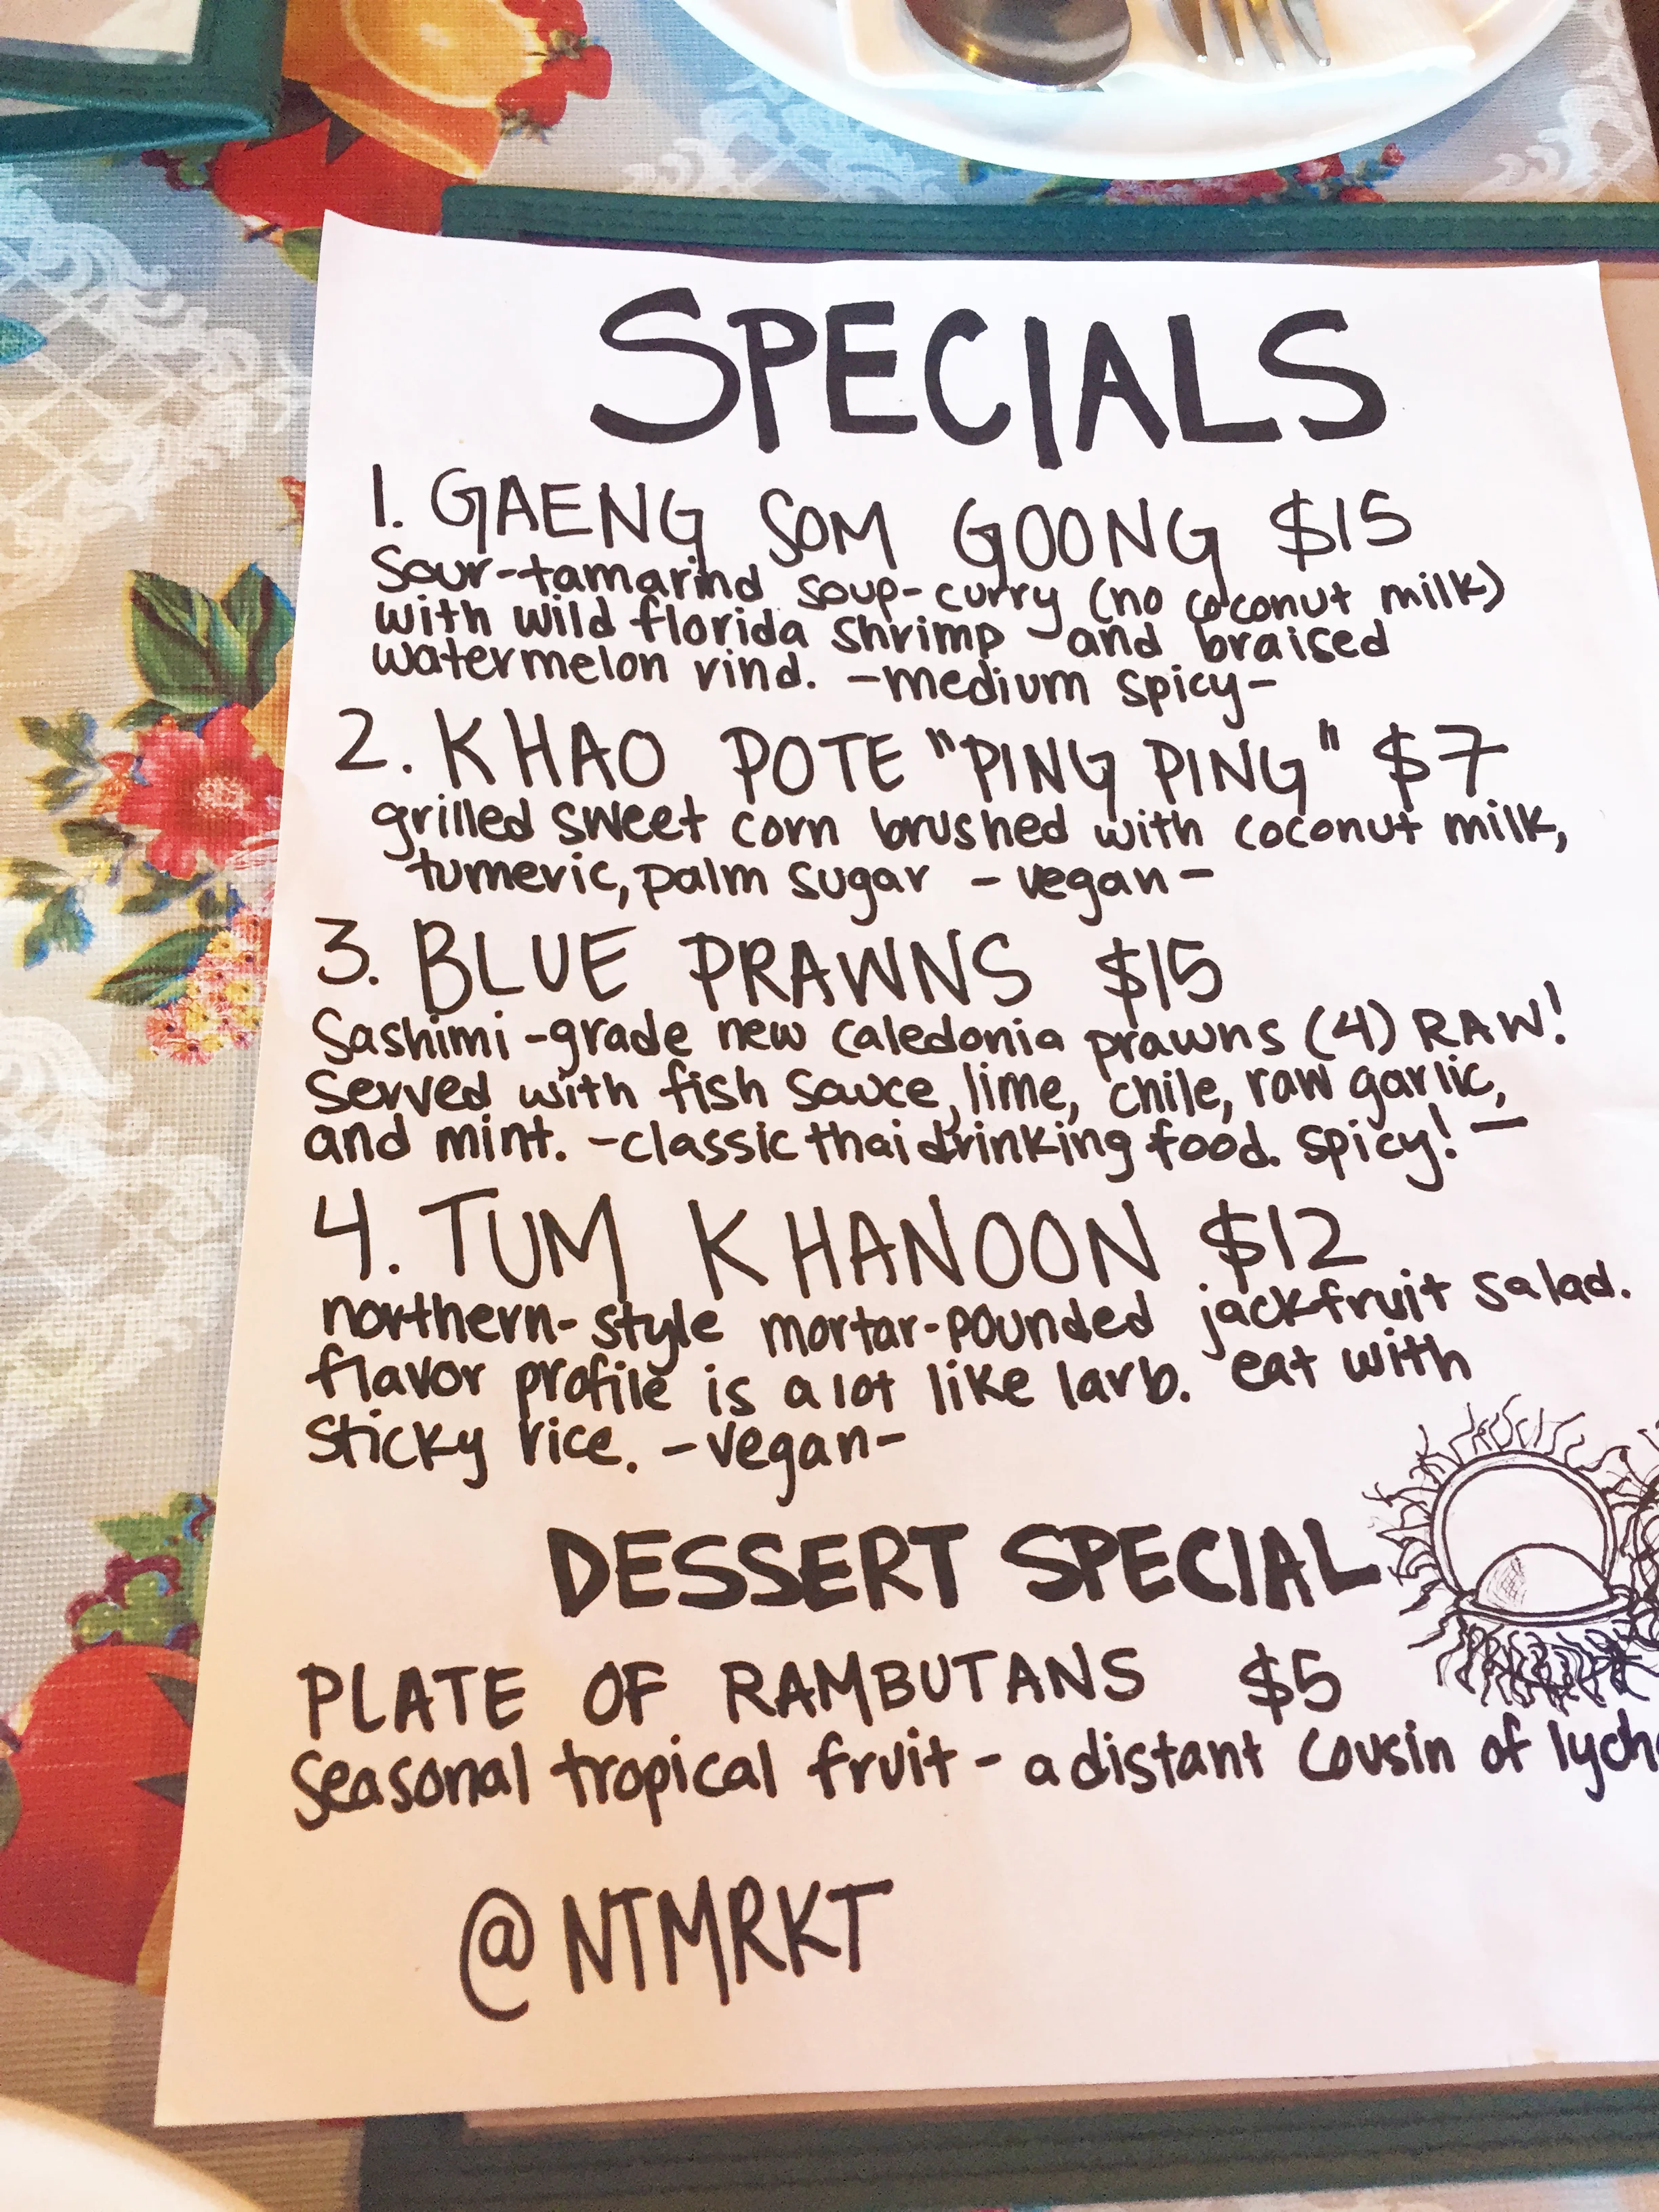 SPECIALS
1. GAENG SOM GOONG $15
Sour-tamarind soup-curry (no coconut milk)
with wild florida shrimp and braised
watermelon rind. -medium spicy-
2. KHAO POTE "PING PING" $7
grilled sweet corn brushed with coconut milk,
tumeric, palm sugar - vegan -
3. BLUE PRAWNS $15
Sashimi-grade new caledonia prawns (4) RAW!
Served with fish sauce, lime, chile, raw garlic,
and mint. -classic thai drinking food. spicy! -
4. TUM KHANOON $12
northern-style mortar-pounded jackfruit salad.
flavor profile is a lot like larb. eat with
sticky rice. -vegan-
DESSERT SPECIAL
PLATE OF RAMBUTANS $5
Seasonal tropical fruit - a distant cousin of
@NTMRKT